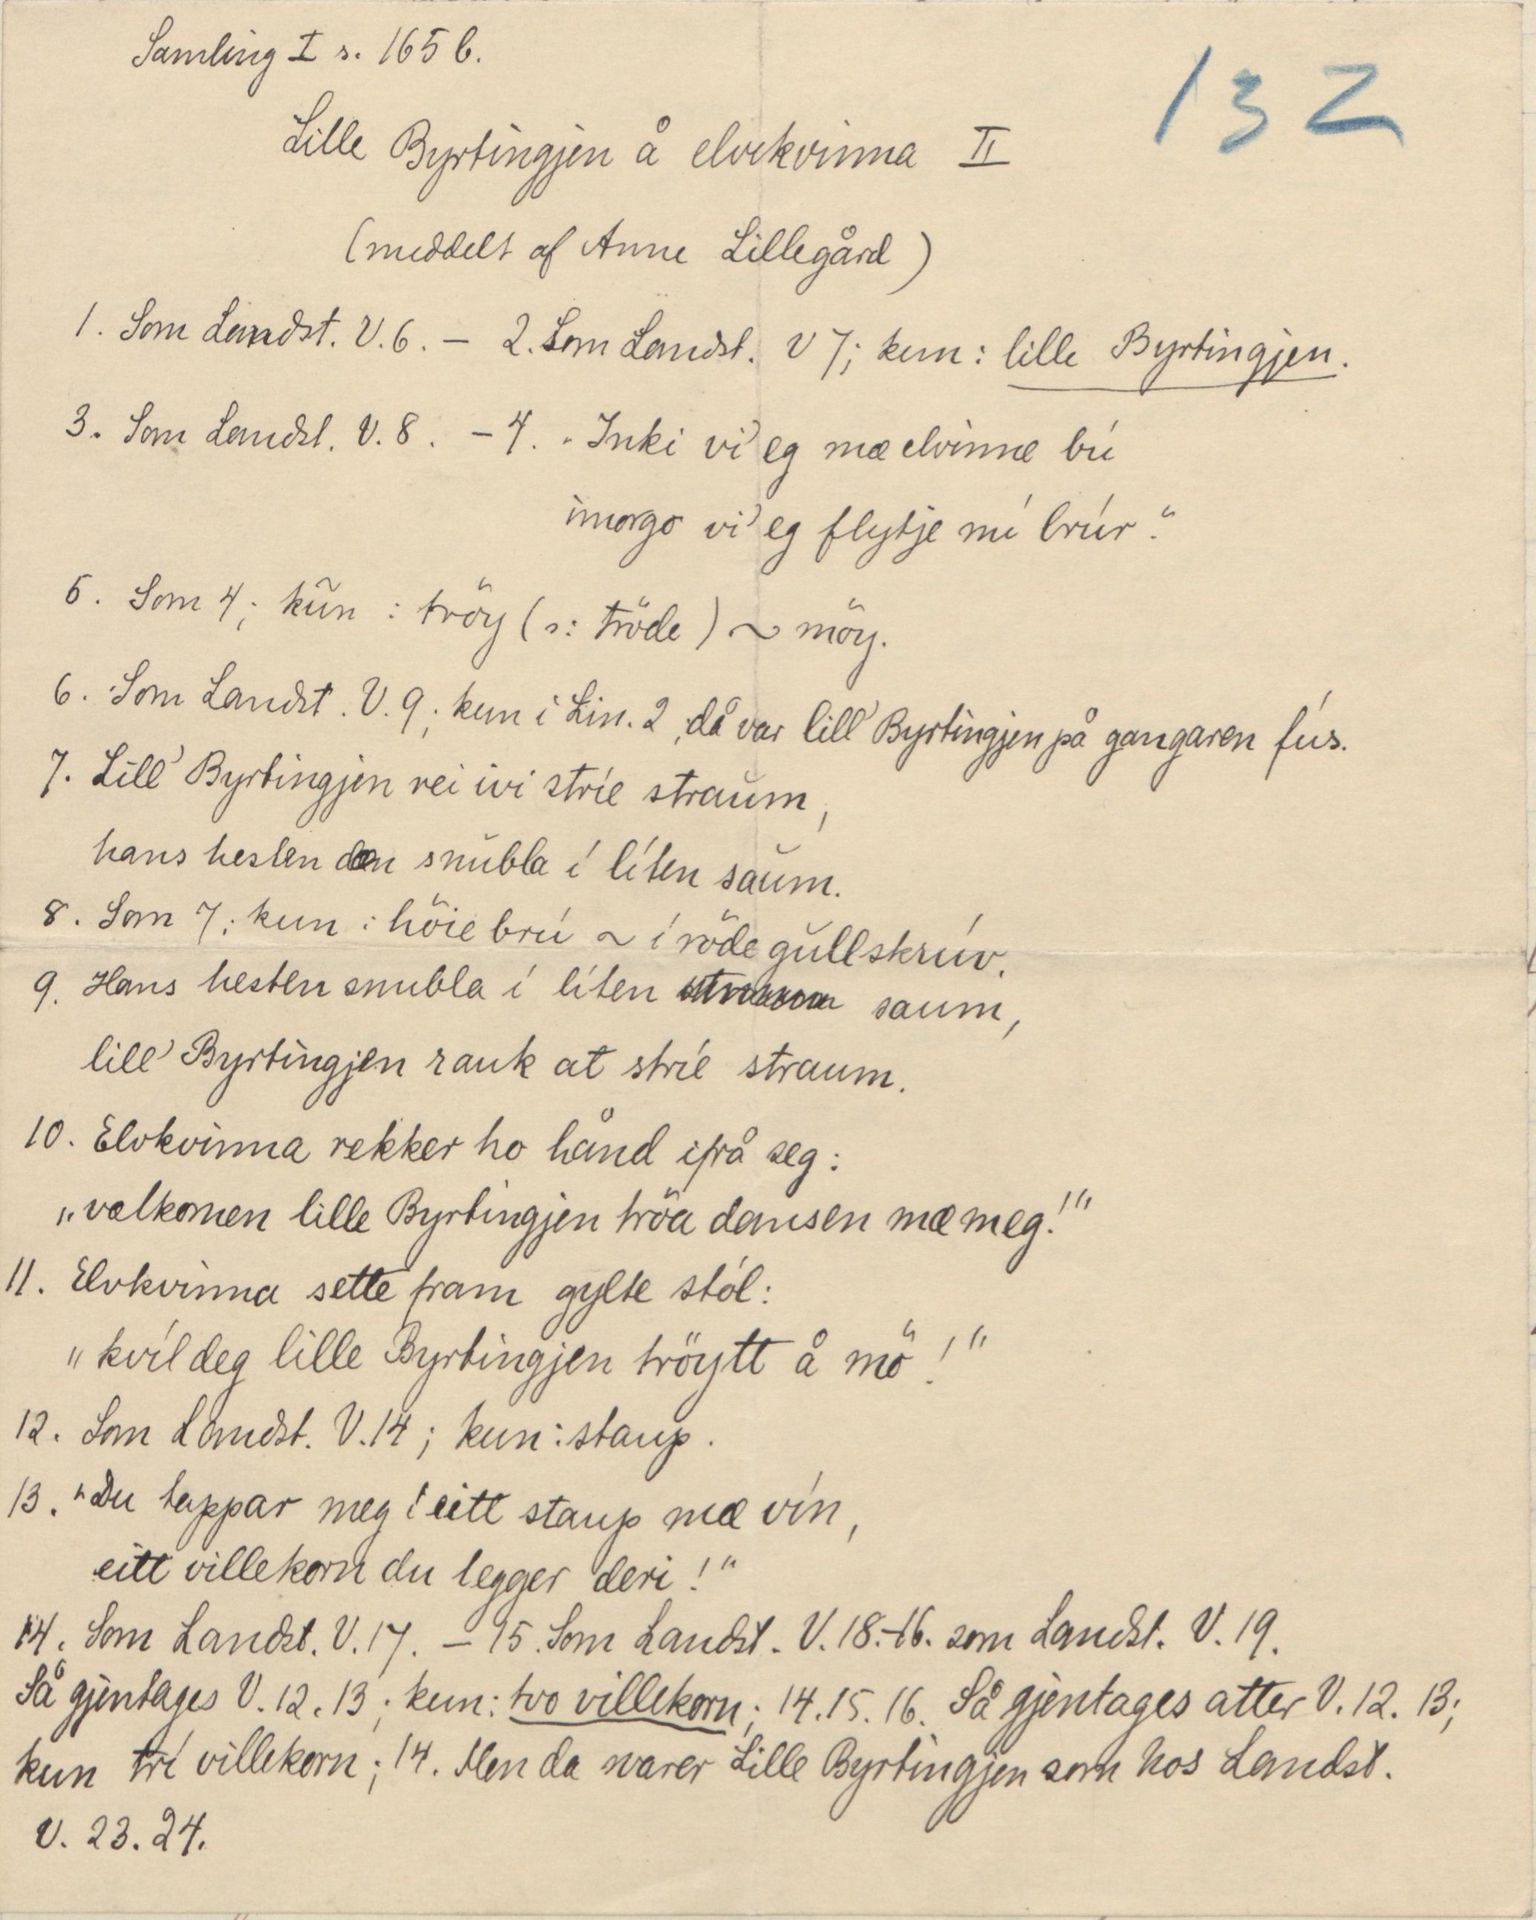 Samling I s. 165 b.
132
Lille Byrtingjen å elvekvinna II
(meddelt af Anne Lillegård)
1. Som Landst. V. 6. – 2. Som Landst. V 7; kun: lille Byrtingjen.
3. Som Landst. V. 8. – 4. "Inki vi' eg mæ elvinne bú
imorgo vi' eg flytje mí brúr."
5. Som 4; kŭn: tröy (ɔ: tröde) ~ möy.
6. Som Landst. V. 9; kun i Lin. 2 „då var lill' Byrtingjen på gangaren fús.
7. Lill' Byrtingjen rei ivi stríe straŭm,
hans hesten den snŭbla í líten saŭm.
8. Som 7; kun: höie brú ~ í röde gŭllskrúv.
9. Hans hesten snubla í líten saum,
lill' Byrtingjen rauk at stríe straum.
10. Elvkvinna rekker ho hånd ifrå seg:
„valkomen lille Byrtingjen tröa dansen mæ meg!"
11. Elvkvinna sette fram gylte stól:
"kvíl deg lille Byrtingjen tröytt å mö!"
12. Som Landst. V. 14; kun: staup.
13. "Du tappar meg í eitt staup mæ vín,
eitt villekorn du legger deri!"
14. Som Landst. V. 17. – 15. Som Landst. V. 18.–16. som Landst. V. 19.
Så gjentages V. 12. 13; kun: tvo villekorn; 14. 15. 16. Så gjentages atter V. 12. 13;
kun trí villekorn; 14. Men da svarer Lille Byrtingjen som hos Landst.
V. 23. 24.